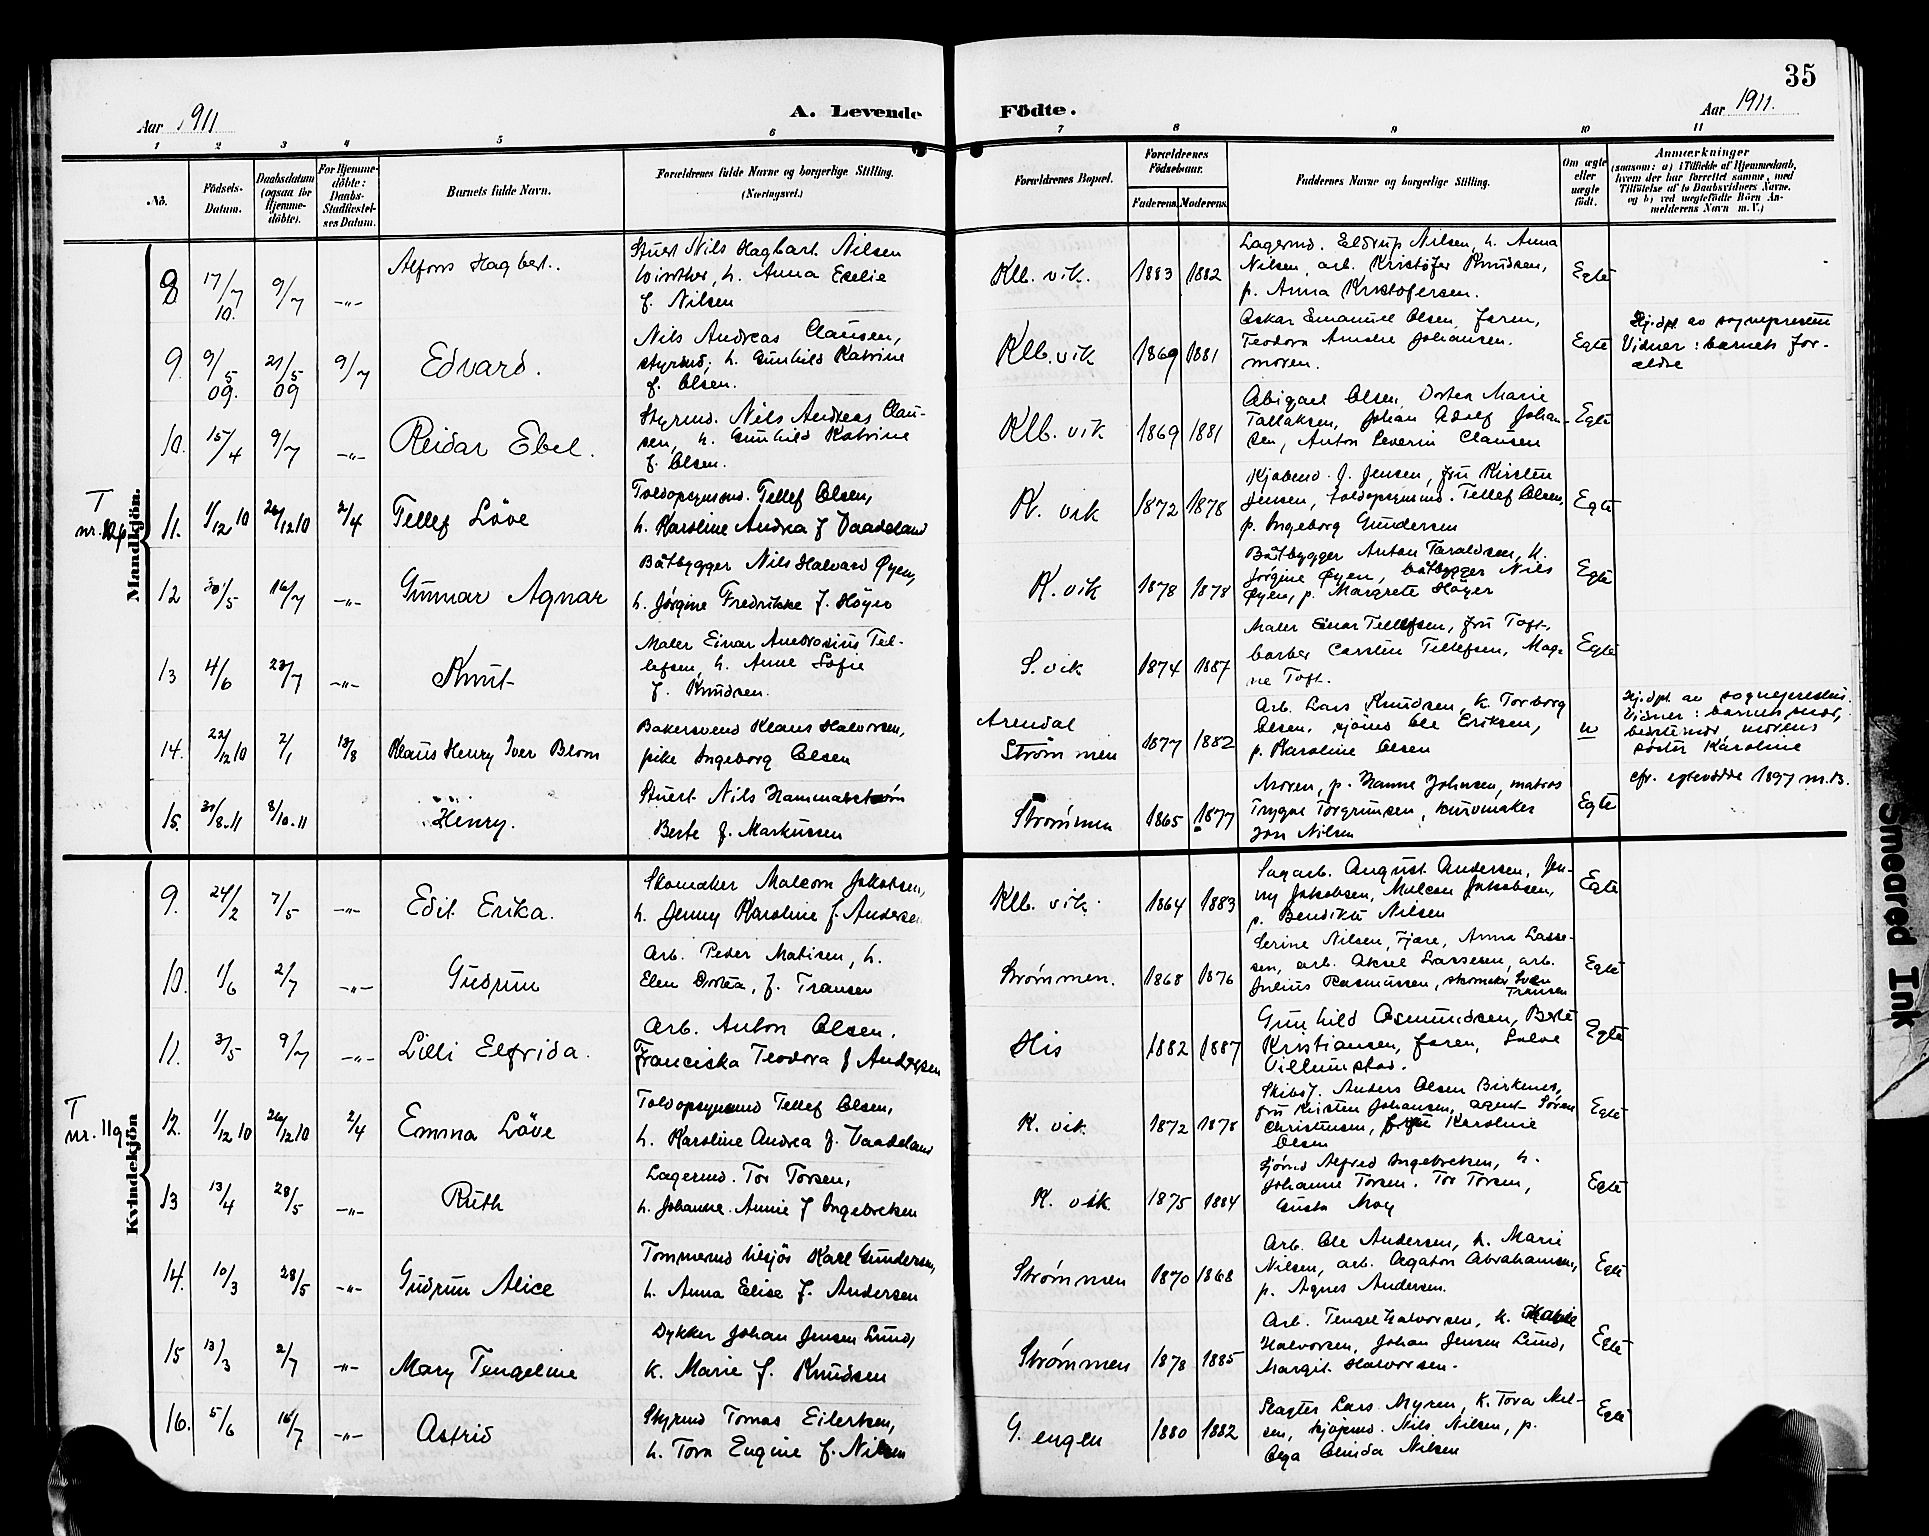 35
Aar 1911
A. Levende
Födte.
Aar 1911.
1 2 3 4 5 6 7 8 9 10 11
No.
Födsels-Datum.
Daabsdatum (ogsaa for Hjemme-döbte).
For Hjemme-döbte: Daabs-Stadfæstel-ses Datum.
Barnets fulde Navn.
Forældrenes fulde Navne og borgerlige Stilling. (Næringsvei.)
Forældrenes Bopæl.
Forældrenes Födselsaar.
Faderens. Moderens.
Faddernes Navne og borgerlige Stilling.
Om ægte eller uægte födt.
Anmærkninger
(saasom: a) i Tilfælde af Hjemmedaab, hvem der har forrettet samme, med Tilföielse af to Daabsvidners Navne. og b) ved uægtefödte Börn An-melderens Navn m. V.)
Mandkjön.
8 17/7 10. 9/7 -"- Alfons Hagbart.
Stuert Nils Hagbart Nilsen
Winther, h. Anna
f. Nilsen
Klb. vik. 1883 1882
Lagermd. Eldrup Nilsen, h. Anna
Nilsen, arb. Kristofer Knudsen,
p. Anna Kristofersen.
Egte
9. 9/5 09. 21/5 09 9/7 Edvard.
Nils Andreas Clausen,
styrmd, h. Gunhild Katrine
f. Olsen.
Klb. vik 1869 1881
Oskar Emanuel Olsen, faren,
Teodora Amalie Johansen.
moren.
Egte
Hj.dpt. av sogneprestin
Vidner: barnets for-
ældre
10. 15/4 9/7 -"- Reidar Ebel.
Styrmd. Nils Andreas Clau-
sen, h. Gunhild Katrine
f. Olsen.
Klb. vik 1869 1881
Abigael Olsen, Dortea Marie
Tallaksen, Johan Adolf Johan-
sen, Anton Severin Clausen
Egte
T
nr. 12 q
11. 1/12 10 26/12 10 2/4 Tellef Löve
Toldopsynsmd. Tellef Olsen,
h. Karoline Andrea f Vaadeland
K. vik 1872 1878
Kjøbmd. J. Jensen, fru Kirsten
Jensen, toldopsynsmd. Tellef Olsen,
p. Ingeborg Gundersen
Egte
12 30/5 16/7 -"- Gunnar Agnar
Båtbygger Nils Halvard Øyen,
h. Jørgine Fredrikke f. Höyer
K. vik 1878 1878
Båtbygger Anton Taraldsen, h.
Jørgine Øyen, båtbygger Nils
Øyen, p. Margrete Höyer
Egte
13 4/6 23/7 -"- Knut
Maler Einar Ambrosius Tel-
lefsen, h. Anne Sofie
f. Knudsen.
S. vik 1874 1887
Maler Einar Tellefsen, fru Toft,
barber Carsten Tellefsen, Mag-
ne Toft.
Egte
14. 22/12 10 2/1 13/8 Klaus Henry Iver Blom
Bakersvend Klaus Halvorsen,
pike Ingeborg Olsen
Arendal
Strømmen 1877 1882
Arb. Lars Knudsen, k. Torborg
Olsen, sjømd Ole Eriksen,
p. Karoline Olsen
u
Hj.dpt. av sogneprestin.
Vidner: barnets mor,
bestemor, morens
søster Karoline
15. 31/8.11 8/10.11 Henry.
Stuert Nils Hammarstrøm
Berte f. Markussen
Strømmen 1865 1877
Moren, p. Hanne Johnsen, matros
Trygve Torgrimsen, kurvmaker
Jon Nilsen
Egte
cfr. egteviede 1897 nr. 13.
Kvindekjön
9. 24/2 7/5 -"- Edit Erika.
Skomaker Malcom Jakobsen,
h. Jenny Karoline f. Andersen
Klb. vik. 1864 1883
Sagarb. August Andersen, Jen-
ny Jakobsen, Malcom Jakobsen,
p. Bendikte Nilsen
Egte
10. 1/6 2/7 -"- Gudrun
Arb. Peder Matisen, h.
Elen Dortea, f. Transen
Strømmen. 1868 1876
Serine Nilsen, Fjære, Anna Lasse-
sen, arb. Aksel Lassesen, arb.
Julius Rasmussen, skomaker Sven Transen
Egte
11. 3/5 9/7 -"- Lilli Elfrida.
Arb. Anton Olsen,
Franciska Teodora f Andersen
His 1882 1887
Gunhild Osmundsen, Berte
Kristiansen, faren, Salve
Villumstad.
Egte
T
nr. 11 q
12. 1/12 10 26/12 10 2/4 Emma Löve
Toldopsynsmd Tellef Olsen,
h. Karoline Andrea f. Vaadeland
K. vik 1872 1878
Skibsf. Anders Olsen Birkenes,
fru Kirsten Johansen, agent Sören
Christensen, fru Karoline
Olsen
Egte
13 13/4 28/5 -"- Ruth
Lagermd. Tor Torsen,
h. Johanne Annie f Ingebretsen
K. vik 1875 1884
Sjømd Alfred Ingebretsen, h.
Johanne Torsen. Tor Torsen,
Gusta Moy
Egte
14. 10/3 28/5 -"- Gudrun Alice
Tømmermd tilsjös Karl Gundersen,
h. Anna Elise f. Andersen
Strømmen 1870 1868
Arb. Ole Andersen, h. Marie
Nilsen, arb. Agaton Abrahamsen,
p. Agnes Andersen.
Egte
15 13/3 2/7 -"- Mary Tengeline
Dykker Johan Jensen Lund,
k. Marie f. Knudsen
Strømmen 1878 1885
Arb. Tengel Halvorsen, k. Marie
Halvorsen, Johan Jensen Lund,
Margit Halvorsen.
Egte
16. 5/6 16/7 -"- Astrid
Styrmd Tomas Eilertsen,
h. Tora Engine f. Nilsen
G. engen 1880 1882
Slagter Lars Myren, k. Tora Nil-
sen, kjøpmd. Nils Nilsen, p.
Olga Nilsen
Egte
Smeared Ink